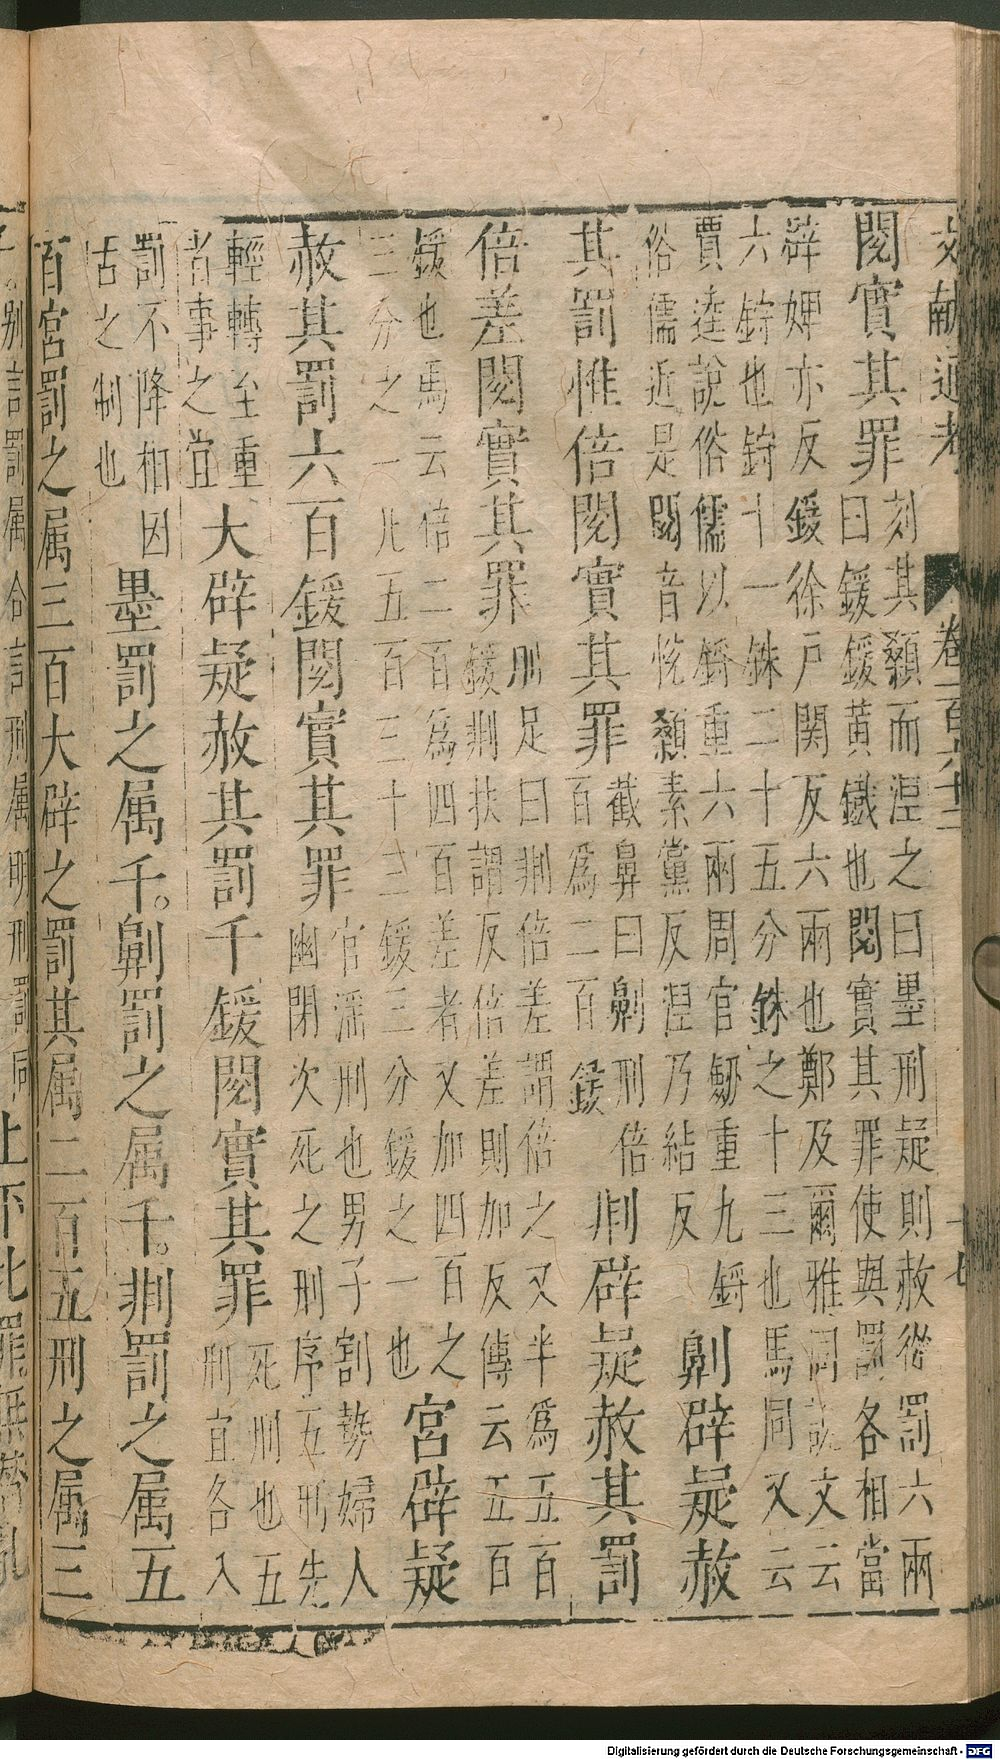 文獻通考 卷一百六十二 十七
閱實其罪 刻其顙而湼之曰墨刑疑則赦從罰六兩
曰鍰鍰黃鐵也閱實其罪使與罰各相當
辟婢亦反鍰徐戶関反六兩也鄭及爾雅同說文云
六鋝也鋝十一銖二十五分銖之十三也馬同又云
賈逵說俗儒以鋝重六兩周官劒重九鋝
俗儒近是閱音恱顙素黨反湼乃結反
劓辟疑赦
其罰惟倍閱實其罪 截鼻曰劓刑倍
百為二百鍰
剕辟疑赦其罰
倍差閱實其罪 刖足曰剕倍差謂倍之又半為五百
鍰剕扶謂反倍差則加反傳云五百
鍰也馬云倍二百為四百差者又加四百之
三分之一凡五百三十三鍰三分鍰之一也
宮辟疑
赦其罰六百鍰閱實其罪 官滛刑也男子割勢婦人
幽閉次死之刑序五刑先
輕轉至重
者事之宜
大辟疑赦其罰千鍰閱實其罪 死刑也五
刑宜各入
罰不降相因
古之制也
墨罰之属千。劓罰之属千。剕罰之属五
百宮罰之属三百大辟之罰其属二百五刑之属三
別言罰属合言刑属明刑罰同
上下比罪無僭亂
Digitalisierung gefördert durch die Deutsche Forschungsgemeinschaft - DFG